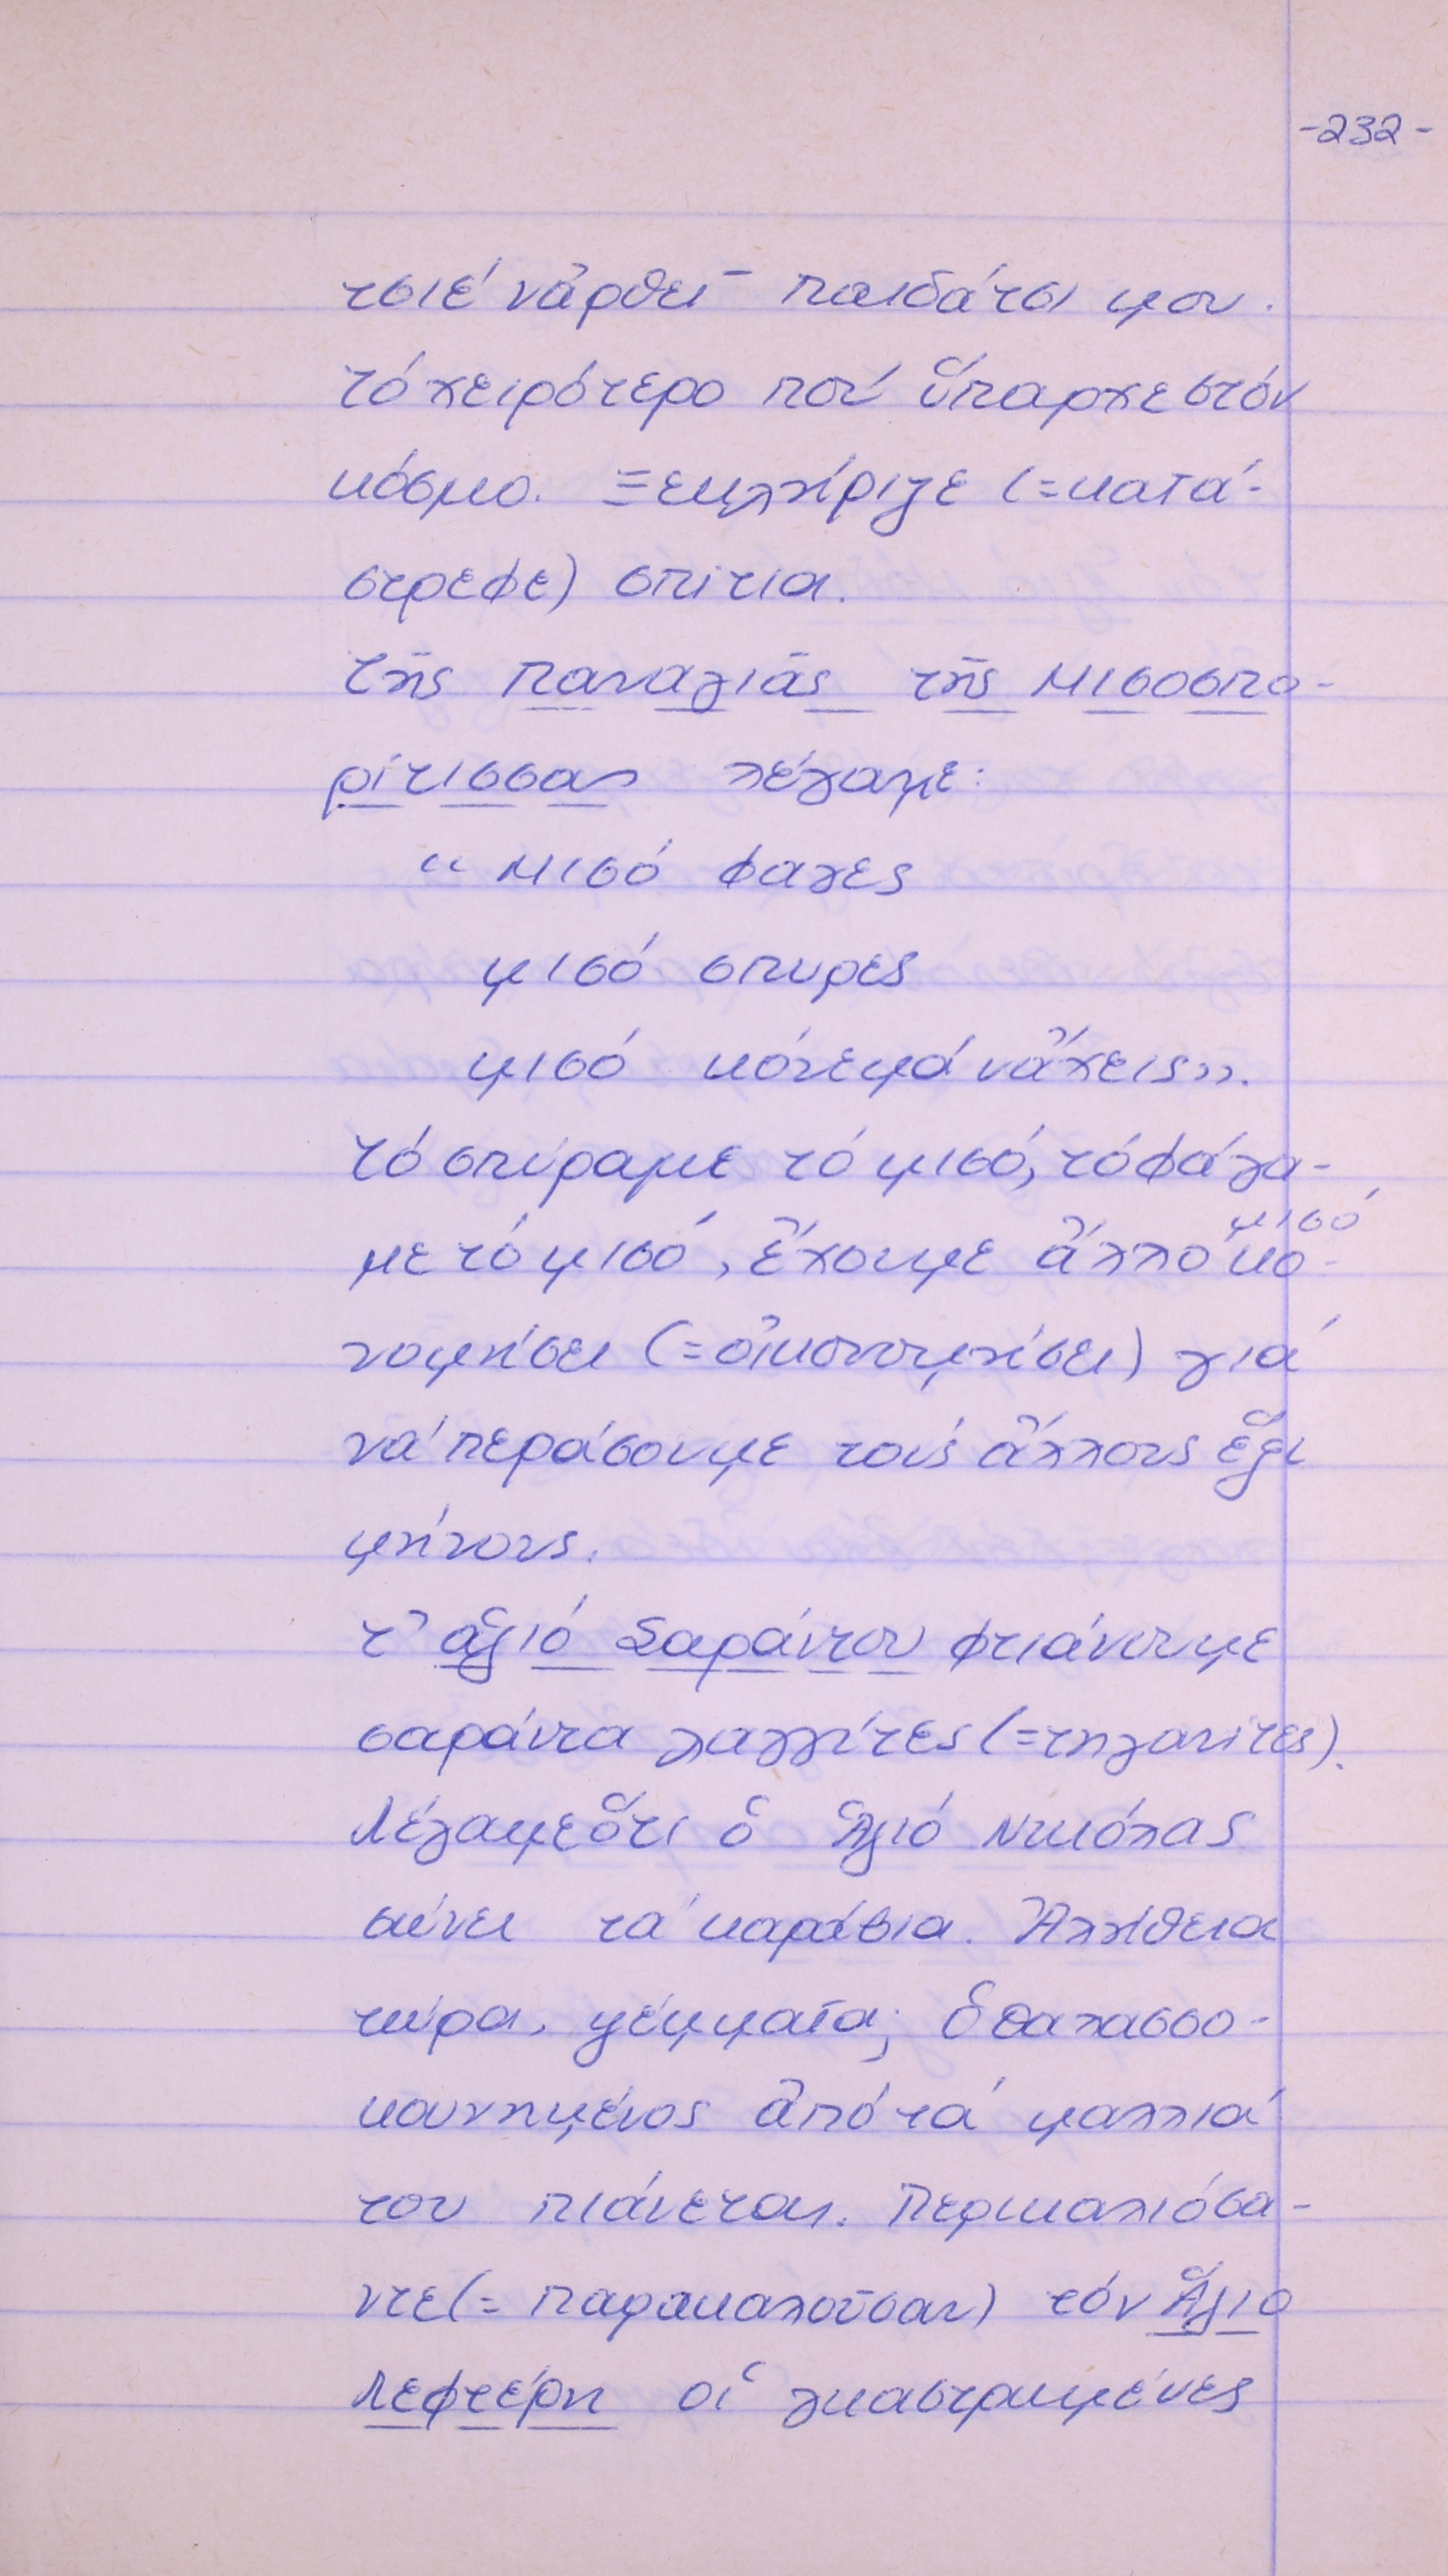 -232-
τσιέ νἄρθει - παιδάτσι μου.
τό χειρότερο πού ὕπαρχε στόν
κόσμο. Ξεκλήριζε (=κατά-
στρεφε) σπίτια.
Τῆς Παναγιᾶς τῆς Μισοσπο-
ρίτισσας λέγαμε:
«Μισό φαγες
μισό σπυρες
μισό κόνεμά νἄχεις».
τό σπύραμε τό μισό, τό φάγα-
με τό μισό, ἔχουμε ἄλλο μισό κο-
νομήσει (=οἰκονομήσει) γιά
νά περάσουμε τούς ἄλλους ἕξι
μήνους.
τ' ἁγιό Σαράντου φτιάνουμε
σαράντα λαγγίτες (=τηγανίτες).
Λέγαμε ὅτι ὁ Ἁγιό Νικόλας
σώνει τά καράβια. Ἀλήθεια
τώρα, ψέμματα; ὁ θαλασσο-
κουνημένος ἀπό τά μαλλιά
του πιάνεται. Περικαλιόσα-
ντε (= παρακαλοῦσαν) τόν Ἅγιο
Λεφτέρη οἱ γκαστρωμένες